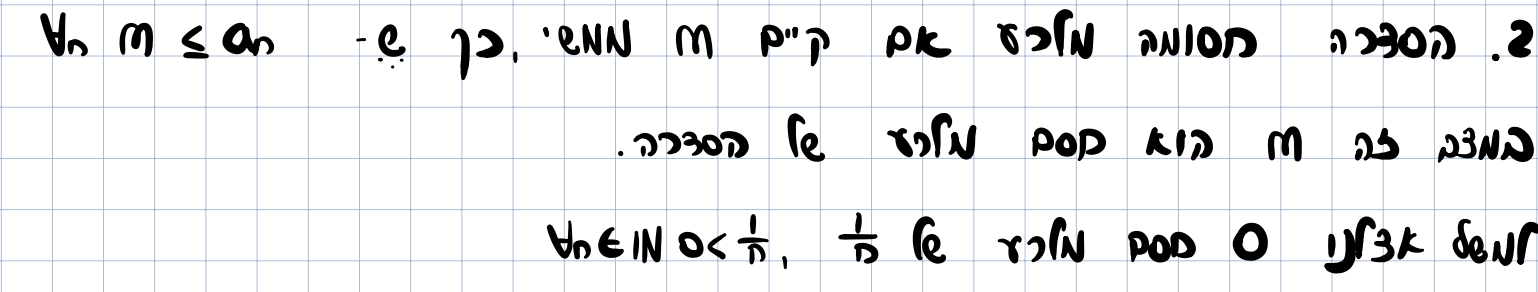 2. הסדרה חסומה מלרע אם קיים m ממשי, כך ש- m ≤ an ∀n
במצב זה m הוא חסם מלרע של הסדרה.
למשל אצלנו 0 חסם מלרע של 1/n, ∀n∈ℕ 0<1/n